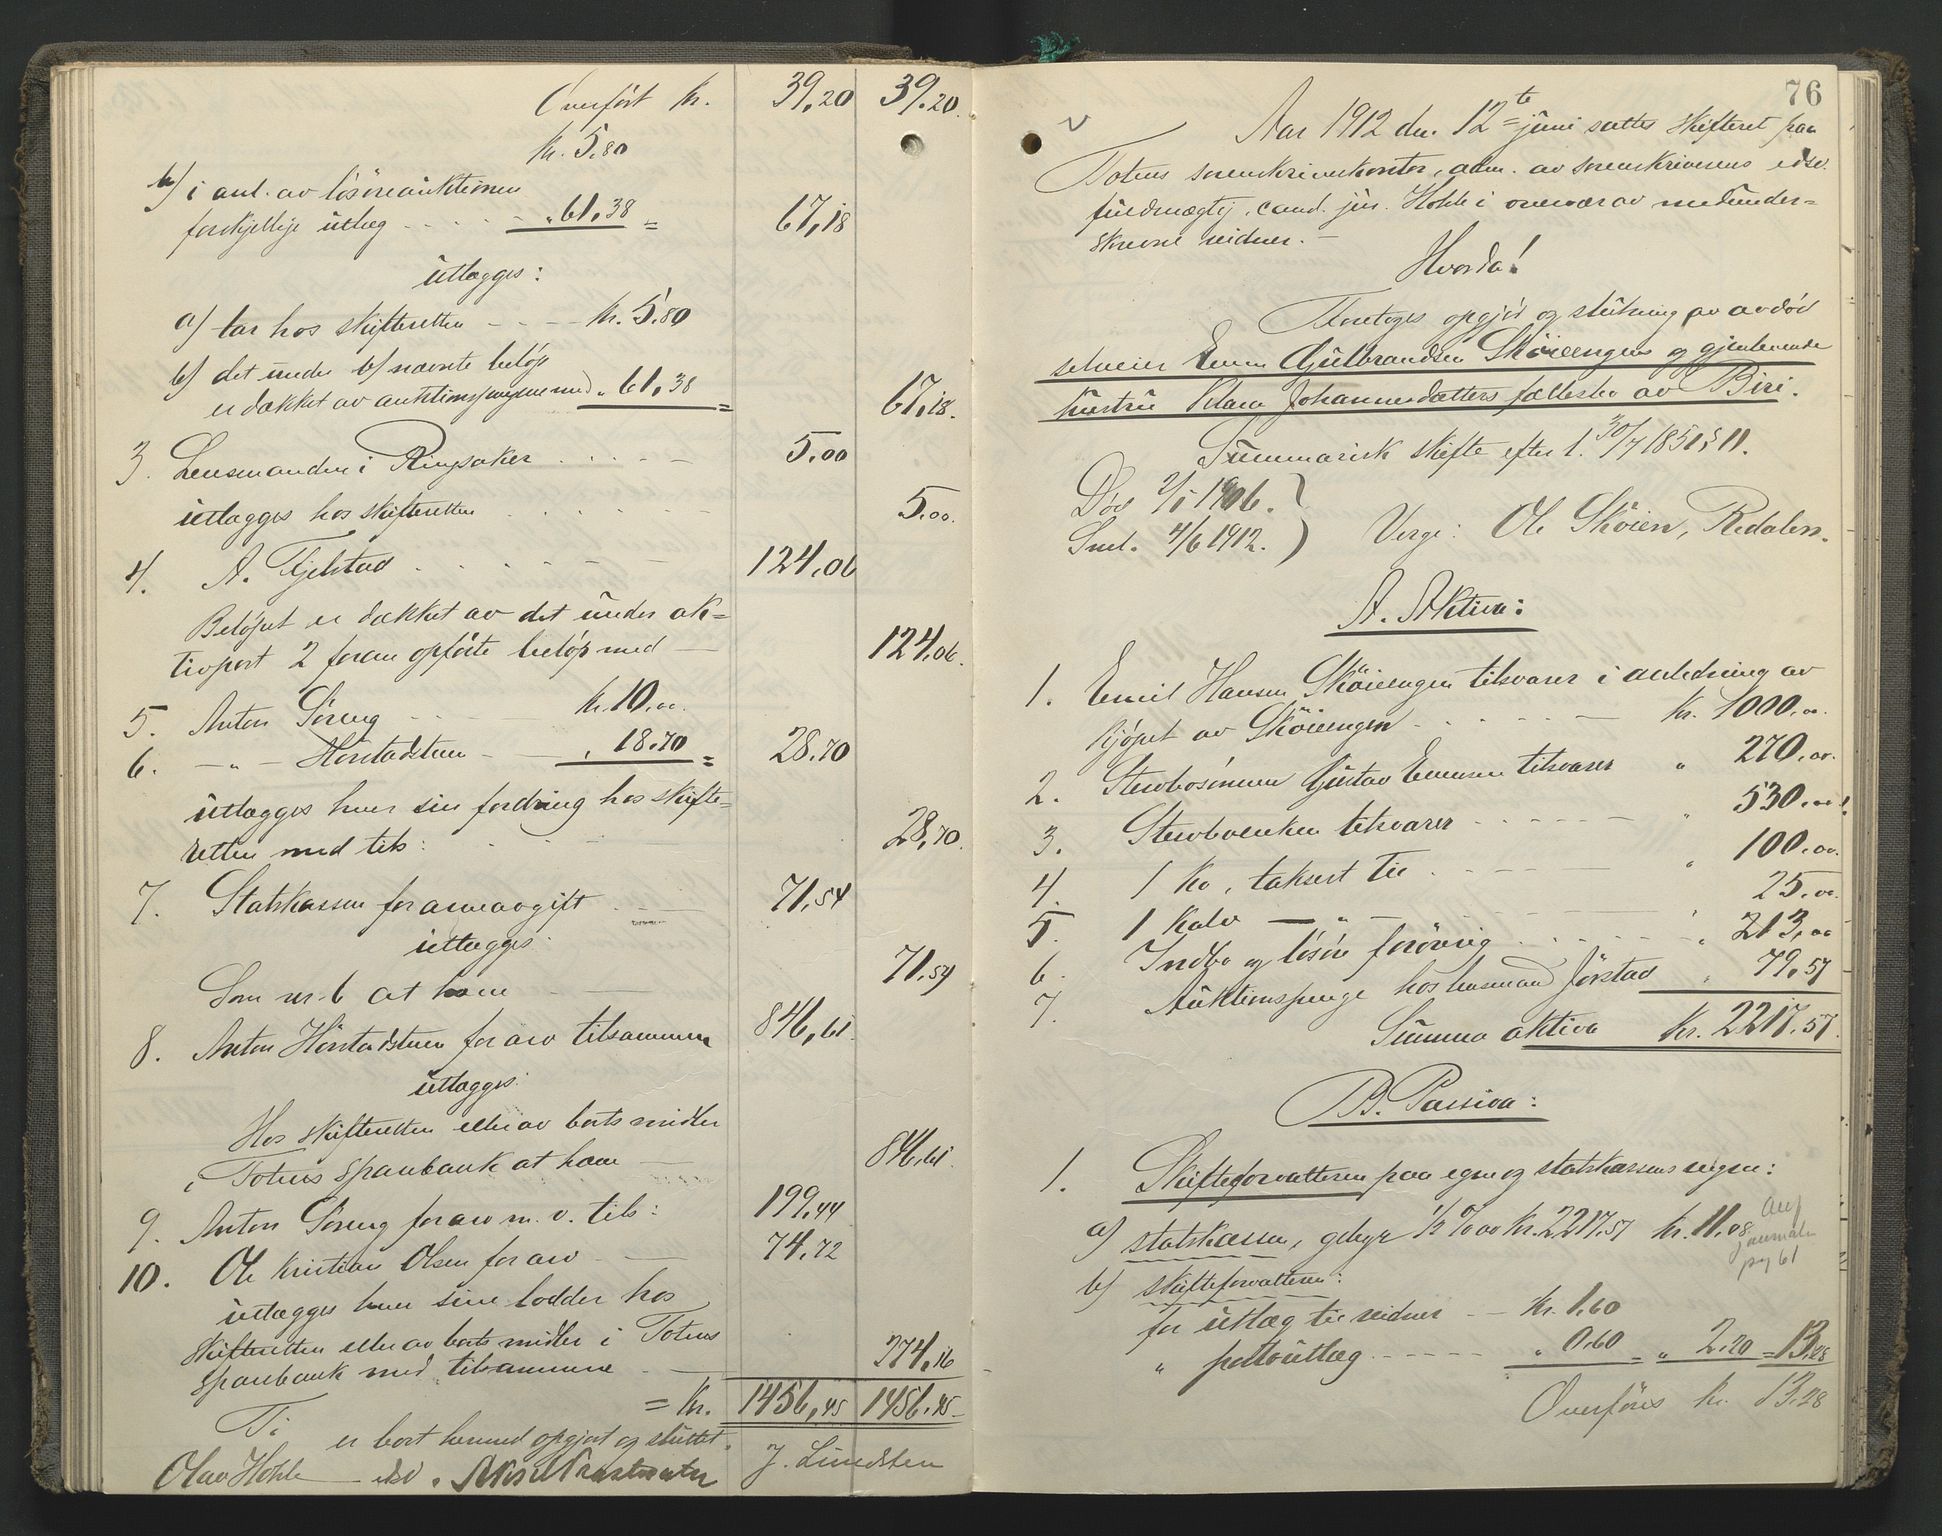 Overført kr. 39,20 39,20.
kr. 5.80
b) i anl. av løsøreauktionen
forskjellige utlæg . . . . „ 61,38 = 67,18
utlægges:
a) tar hos skifteretten - . . - kr. 5.80
b) det under b) nævnte beløp
er dækket av auktionspengene med „ 61,38 = 67,18.
3. Lensmanden i Ringsaker . . . . 5.00
utlægges hos skifteretten . . . . 5.00.
4. A. Fjelstad . . . . 124,06
Beløpet er dækket av det under ak=
tivpost 2 foran opførte beløp med — 124,06.
5. Anton Søreng . . . kr. 10.00.
6. - „ - Hørstadstuen - - „ 18.70 = 28.70
utlægges hver sin fordring hos skifte=
retten med tils: . . - 28,70.
7. Statskassen for arveavgift . . . 71,54
utlægges:
Som nr. 6 at hæve — 71,54
8. Anton Hørstadstuen for arv tilsammen 846,61.
utlægges:
Hos skifteretten eller av boets midler
i Totens sparebank at hæve — 846,61.
9. Anton Søreng for arv m. v. tils: 199,44
10. Ole Kristian Olsen for arv — 74,72
utlægges hver sine lodder hos
skifteretten eller av boets midler i Totens
sparebank med tilsammen — 274,16
= kr. 1456,45 1456,45
Ti er boet hermed opgjort og sluttet.
Olav Hohle — edsv. J. Lundsten
76
Aar 1912 den 12te juni sattes skifteret paa
Totens sorenskriverkontor, adm. av sorenskriverens edsv.
fuldmægtig, cand. jur. Hohle i overvær av medunder=
skrevne vidner. -
Hvorda!
Foretoges opgjør og slutning av avdød
selveier Even Gulbrandsen Skøiengen og gjenlevende
hustru Klara Johannesdatters fællesbo av Biri.
Summarisk skifte efter l. 30/7 1851 § 11.
Død 2/5 1906.
Smel. 4/6 1912. } Verge: Ole Skøien, Redalen.
A. Aktiva:
1. Emil Hansen Skøiengen tilsvarer i anledning av
kjøpet av Skøiengen . . . . - kr. 1000.00.
2. Stervbosønnen Gustav Evensen tilsvarer „ 270.00.
3. Stervboenken tilsvarer - - - - „ 530.00!
4. 1 ko, taksert til . - - - „ 100.00.
5. 1 kalv — „ - - - - „ 25.00.
6. Indbo og løsøre forøvrig . . . . „ 213,00
7. Auktionspenge hos lensmand Jørstad „ 79,57
Summa aktiva kr. 2217.57.
B. Passiva:
1. Skifteforvalteren paa egne og statskassens vegne:
a) statskassen, gebyr ½ % av kr. 2217.57 kr. 11.08
journalen
pag 61
b) skifteforvalteren:
for utlæg til vidner - - kr. 1.60
„ portoutlæg - - - - „ 0.60 = „ 2.20 = 13.28
Overføres kr. 13.28